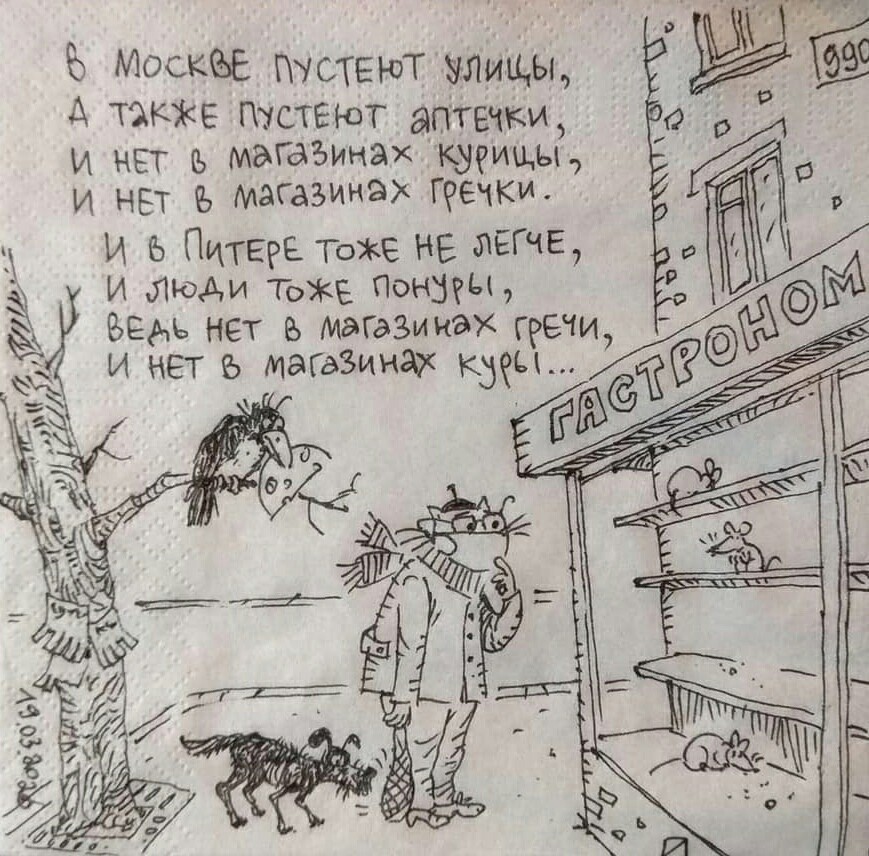 В МОСКВЕ ПУСТЕЮТ УЛИЦЫ,
А ТАКЖЕ ПУСТЕЮТ АПТЕЧКИ,
И НЕТ В МАГАЗИНАХ КУРИЦЫ,
И НЕТ В МАГАЗИНАХ ГРЕЧКИ.
И В ПИТЕРЕ ТОЖЕ НЕ ЛЕГЧЕ,
И ЛЮДИ ТОЖЕ ПОНУРЫ,
ВЕДЬ НЕТ В МАГАЗИНАХ ГРЕЧИ,
И НЕТ В МАГАЗИНАХ КУРЫ...
ГАСТРОНОМ